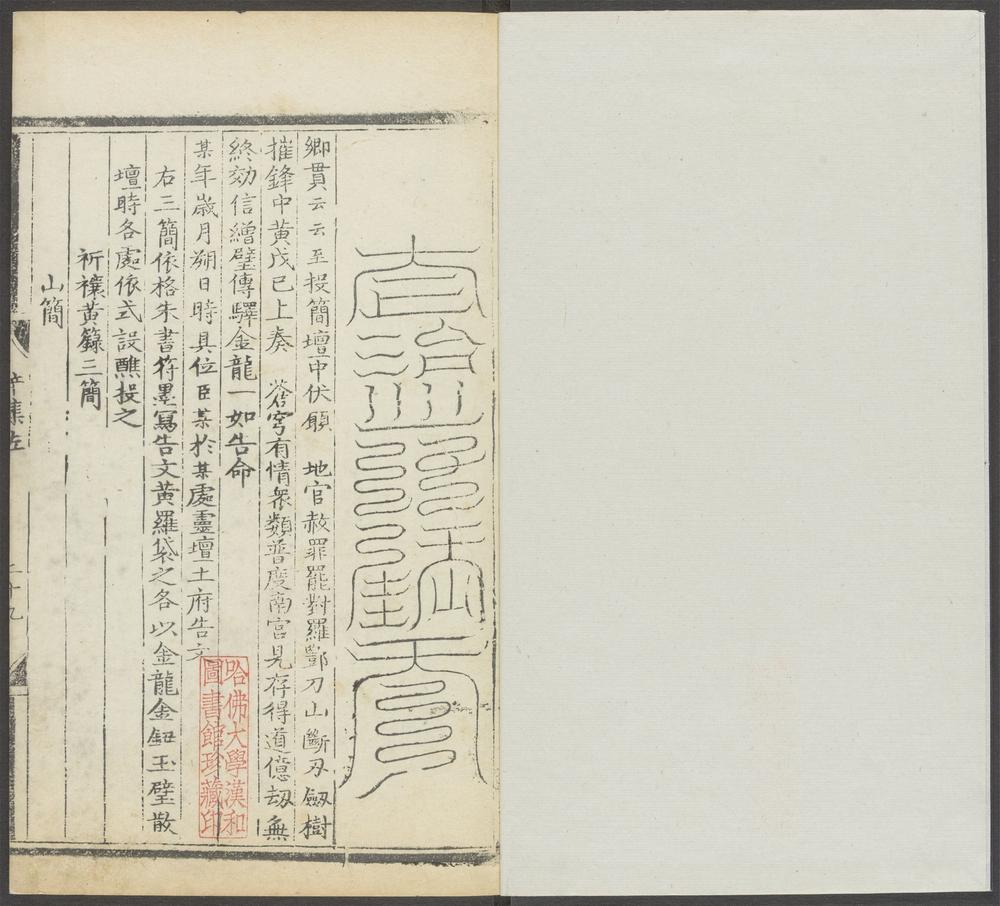 鄉貫云云至投簡壇中伏願　地官赦罪罷對羅酆刀山斷刃劒樹
摧鋒中黃戊己上奏　蒼穹有情衆類普度南宮見存得道億劫無
終効信繒璧傳驛金龍一如告命
某年歲月朔日時具位臣某於某處靈壇土府告文
右三簡依格朱書符墨寫告文黃羅袋之各以金龍金鈕玉璧散
壇時各處依式設醮投之
祈禳黃籙三簡
山簡
哈佛大學漢和
圖書館珍藏印